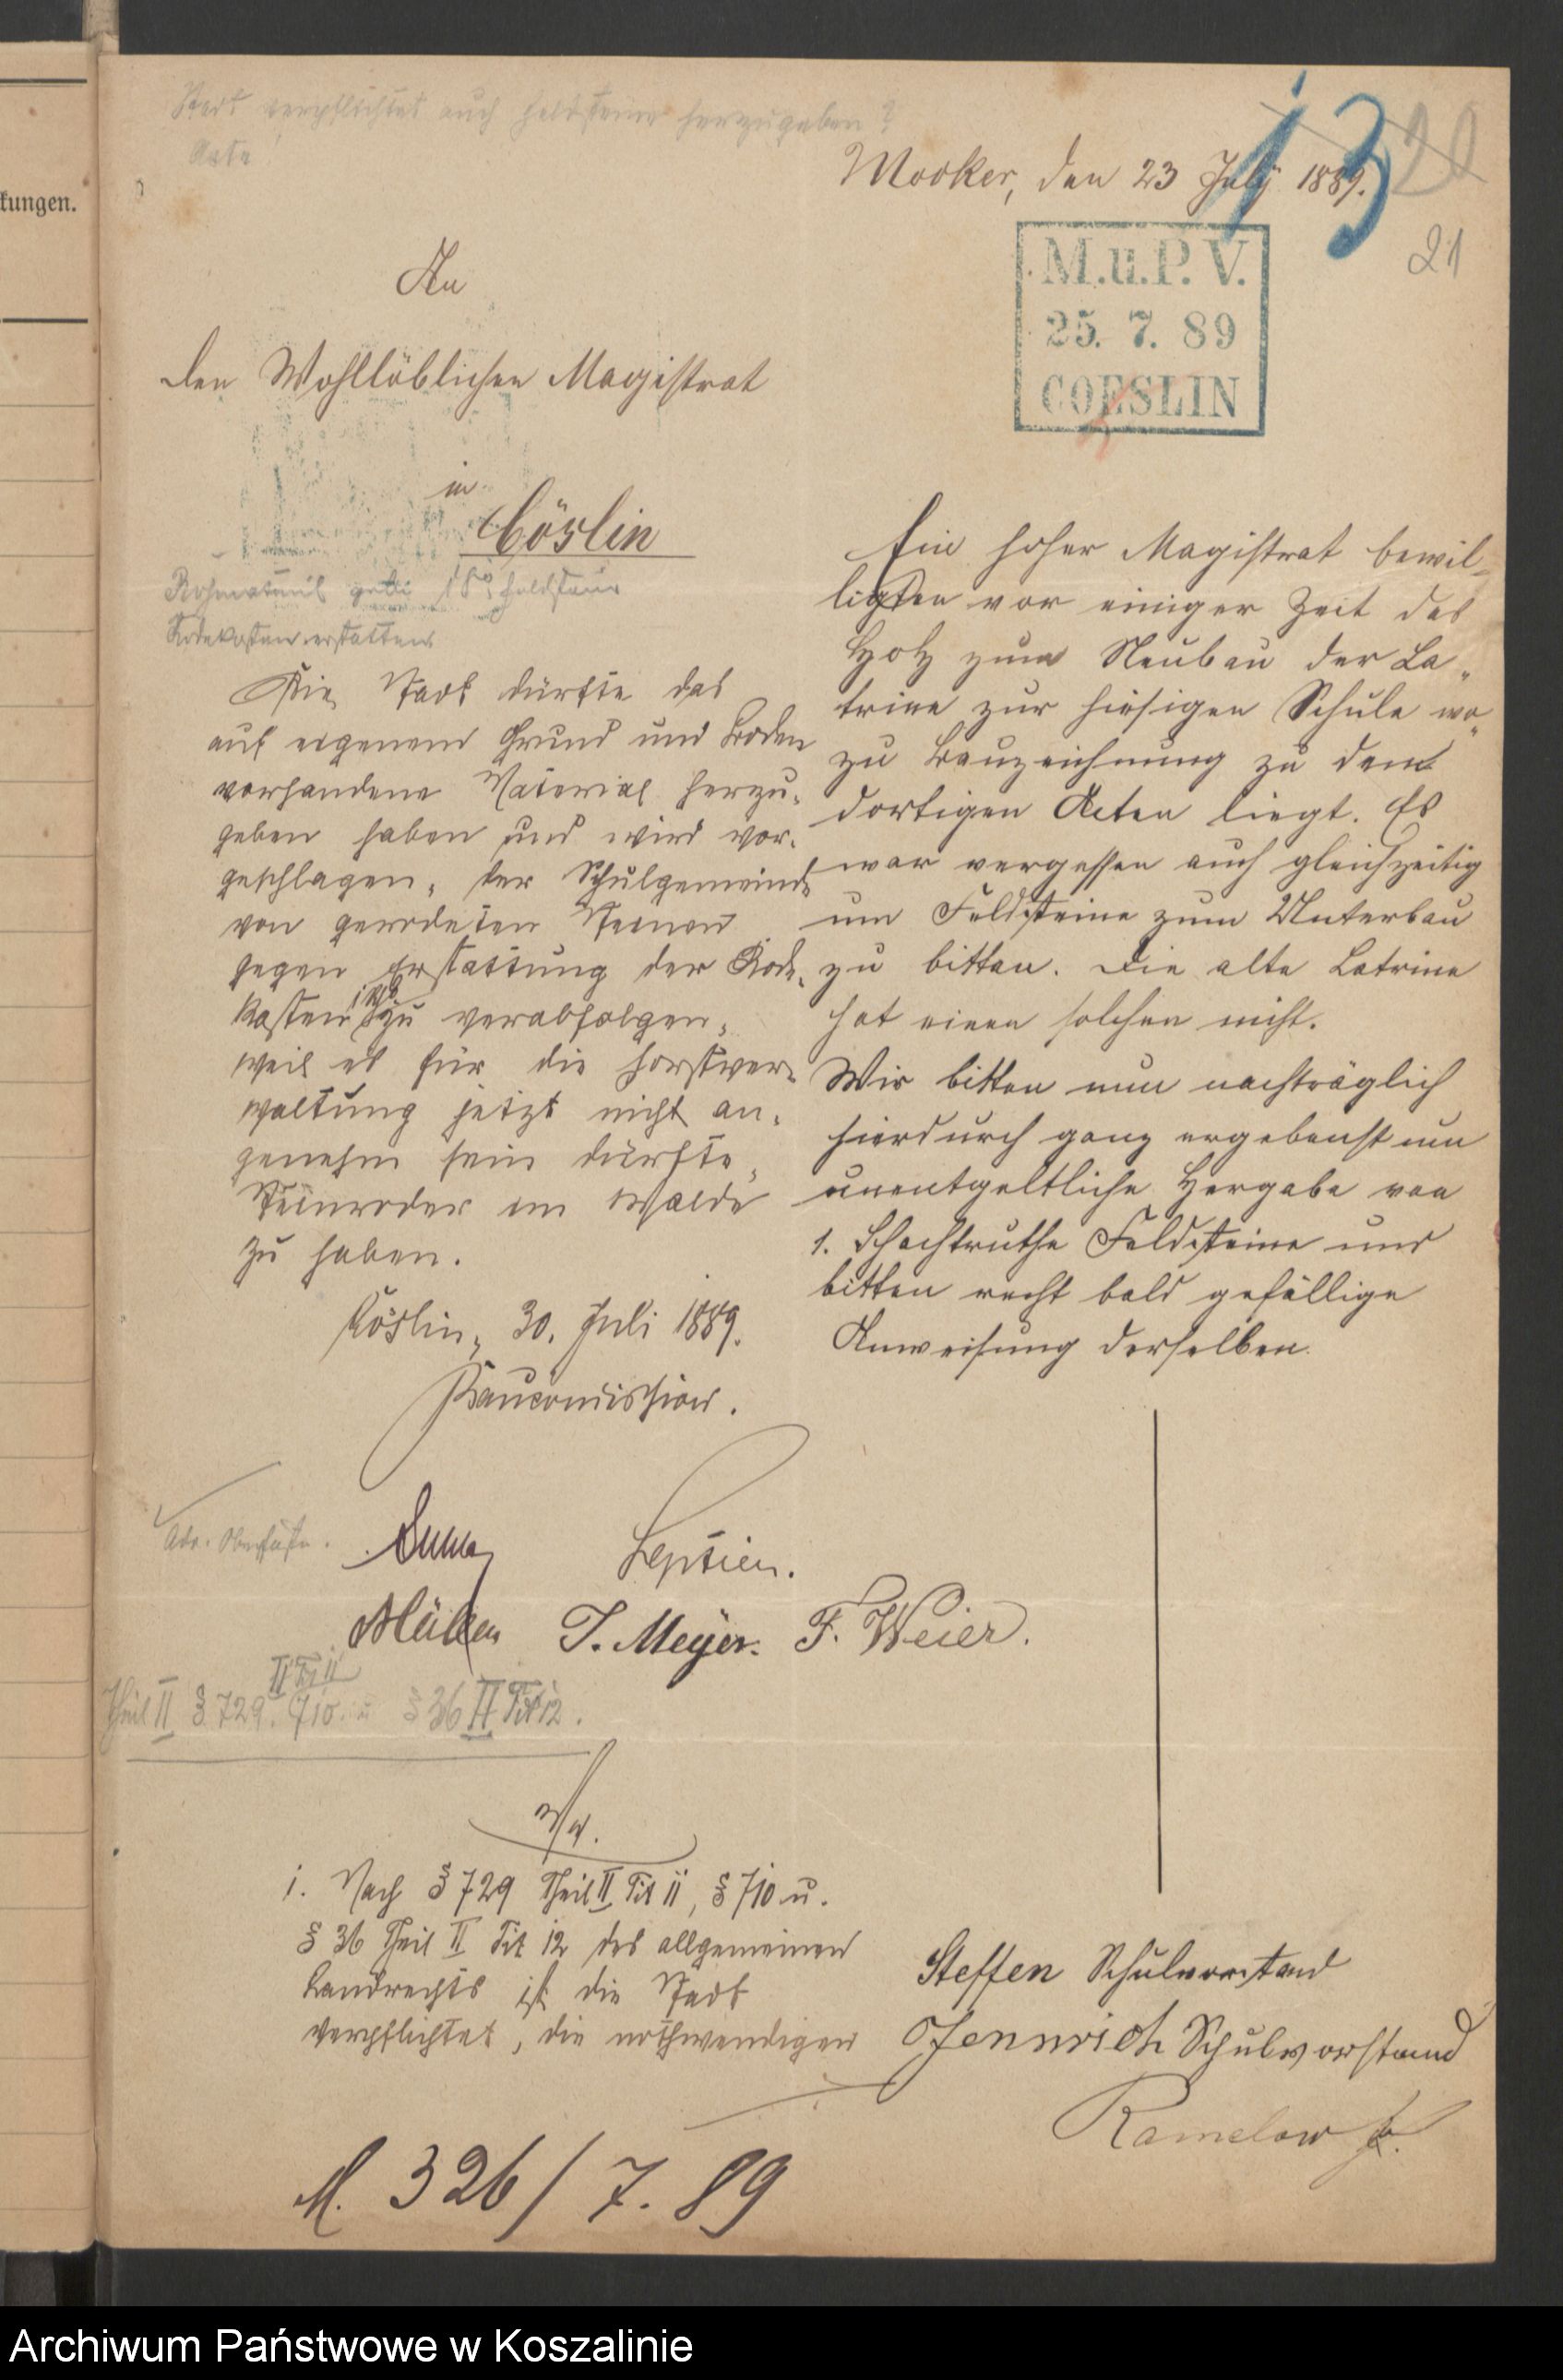 kungen.
Stadt verpflichtet auch Feldsteine herzugeben?
Acta
Mocker, den 23 July 1889.
13
20
21
M.u.P.V.
25. 7. 89
COESLIN
An
den Wohllöblichen Magistrat
in
Cöslin
18 Feldsteine
Rodekosten erstatten
Ein hoher Magistrat bewil-
ligten vor einiger Zeit das
Holz zum Neubau der La-
trine zur hiesigen Schule wo-
zu Bauzeichnung zu dem
dortigen Acten liegt. Es
war vergessen auch gleichzeitig
um Feldsteine zum Unterbau
zu bitten. Die alte Latrine
hat einen solchen nicht.
Wir bitten nun nachträglich
hierdurch ganz ergebenst um
unentgeltliche Hergabe von
1. Schachtruthe Feldsteine und
bitten recht bald gefällige
Anweisung derselben.
Steffen Schulvorstand
Jennrich Schulvorstand
Ramelow
Die Stadt dürfte das
auf eigenem Grund und Boden
vorhandene Material herzu-
geben haben und wird vor-
geschlagen, der Schulgemeinde
von gerodeten Steinen
gegen Erstattung der Rode-
kosten zu verabfolgen,
weil es für die Forstver-
waltung jetzt nicht an-
genehm sein dürfte,
Steinroder im Walde
zu haben.
Cöslin, 30. Juli 1889.
Baucommission.
Leptien.
Müller J. Meyer. F. Weier.
II Tit 11
Theil II § 729. 710. u § 36 II Tit 12.
1. Nach § 729 Theil II Tit 11, § 710 u.
§ 36 Theil II Tit 12 des allgemeinen
Landrechts ist die Stadt
verpflichtet, die nothwendigen
M. 326/7. 89
Archiwum Państwowe w Koszalinie